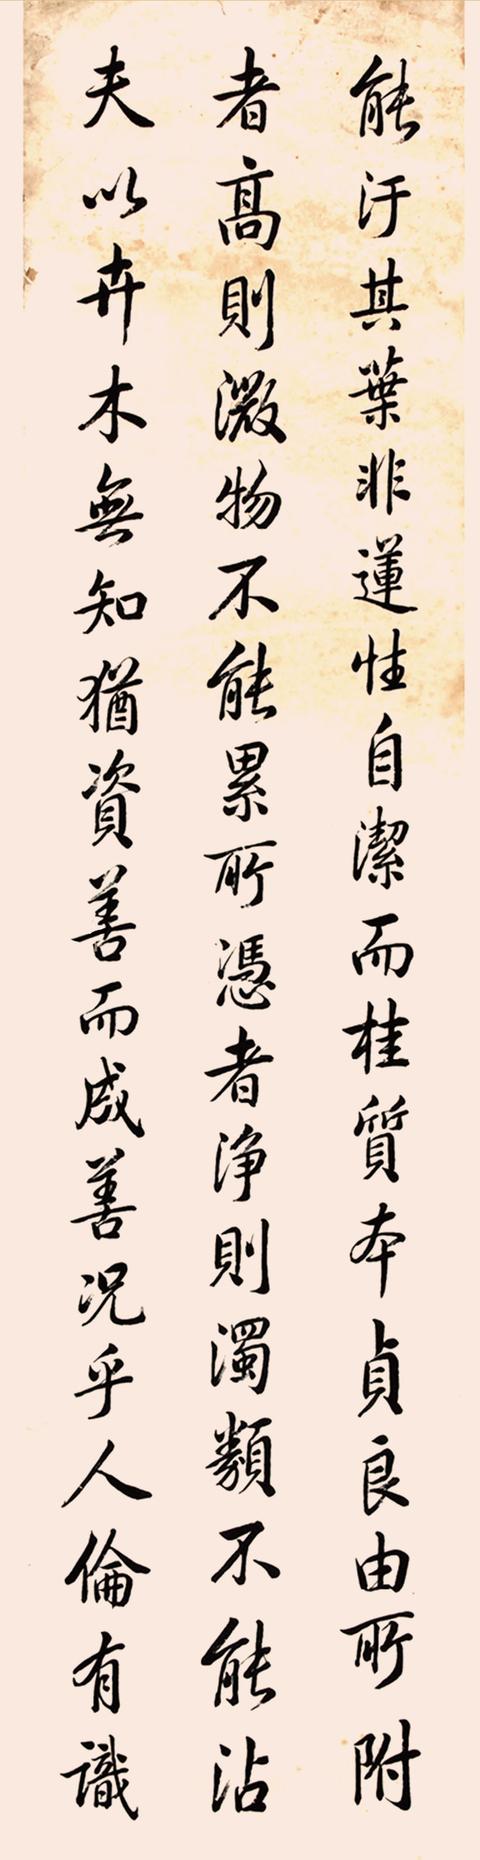 能汙其葉非蓮性自潔而桂質本貞良由所附
者高則微物不能累所憑者淨則濁類不能沾
夫以卉木無知猶資善而成善況乎人倫有識